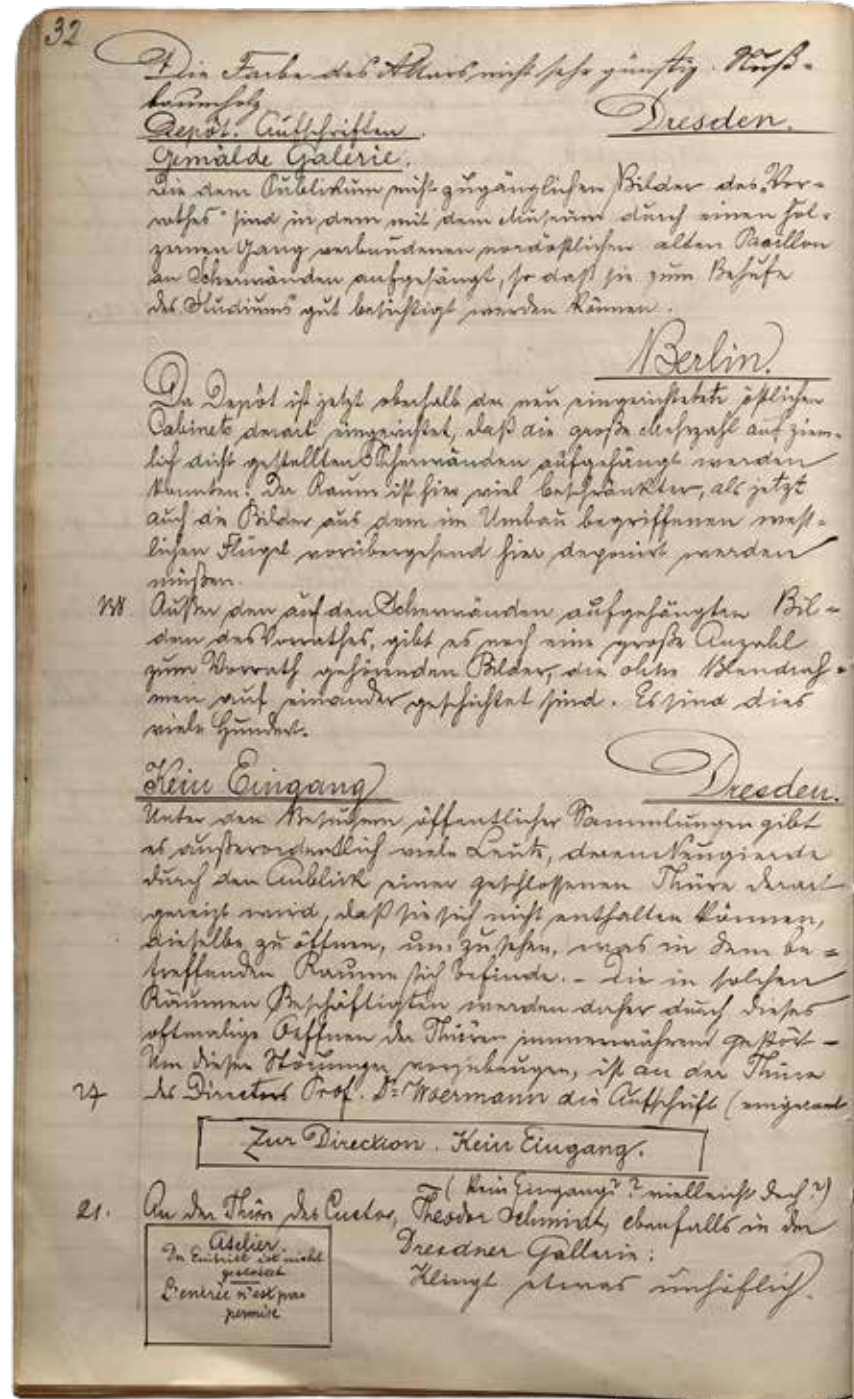 32
Die Farbe des Altars nicht sehr günstig. Nuß-
baumholz
Depôt. Aufschriften.
Dresden.
Gemälde Galerie.
Die dem Publikum nicht zugänglichen Bilder des „Vor-
rathes" sind in dem mit dem Museum durch einen höl-
zernen Gang verbundenen nordöstlichen alten Pavillon
an Scherwänden aufgehängt, so daß sie zum Behufe
des Studiums gut besichtigt werden können.
Berlin.
Da Depôt ist jetzt oberhalb der neu eingerichteten östlichen
Cabinete derart eingerichtet, daß die große Mehrzahl auf ziem-
lich dicht gestellten Scherwänden aufgehängt werden
konnten. Der Raum ist hier viel beschränkter, als jetzt
auch die Bilder aus dem im Umbau begriffenen west-
lichen Flügel vorübergehend hier deponirt werden
müßen.
Außer den auf den Scherwänden aufgehängten Bil-
dern des Vorrathes, gibt es noch eine große Anzahl
zum Vorrath gehörenden Bilder, die ohne Blendrah-
men auf einander geschichtet sind. Es sind dies
viele Hundert.
Kein Eingang
Dresden.
Unter den Besuchern öffentlicher Sammlungen gibt
es außerordentlich viele Leute, deren Neugierde
durch den Anblick einer geschlossenen Thüre derart
gereizt wird, daß sie sich nicht enthalten können,
dieselbe zu öffnen, um zu sehen, was in dem be-
treffenden Raume sich befinde. – Die in solchen
Räumen Beschäftigten werden daher durch dieses
oftmalige Oeffnen der Thüren immerwährend gestört –
Um diesen Störungen vorzubeugen, ist an der Thüre
des Directors Prof. Dr. Woermann die Aufschrift
Zur Direction. Kein Eingang.
(Kein Eingang? ? vielleicht doch?)
21. An der Thüre des Custos, Theodor Schmidt, ebenfalls in der
Dresdner Gallerie:
Atelier.
Der Eintritt ist nicht
gestattet
L'entrée n'est pas
permise
Klingt etwas unhöflich.